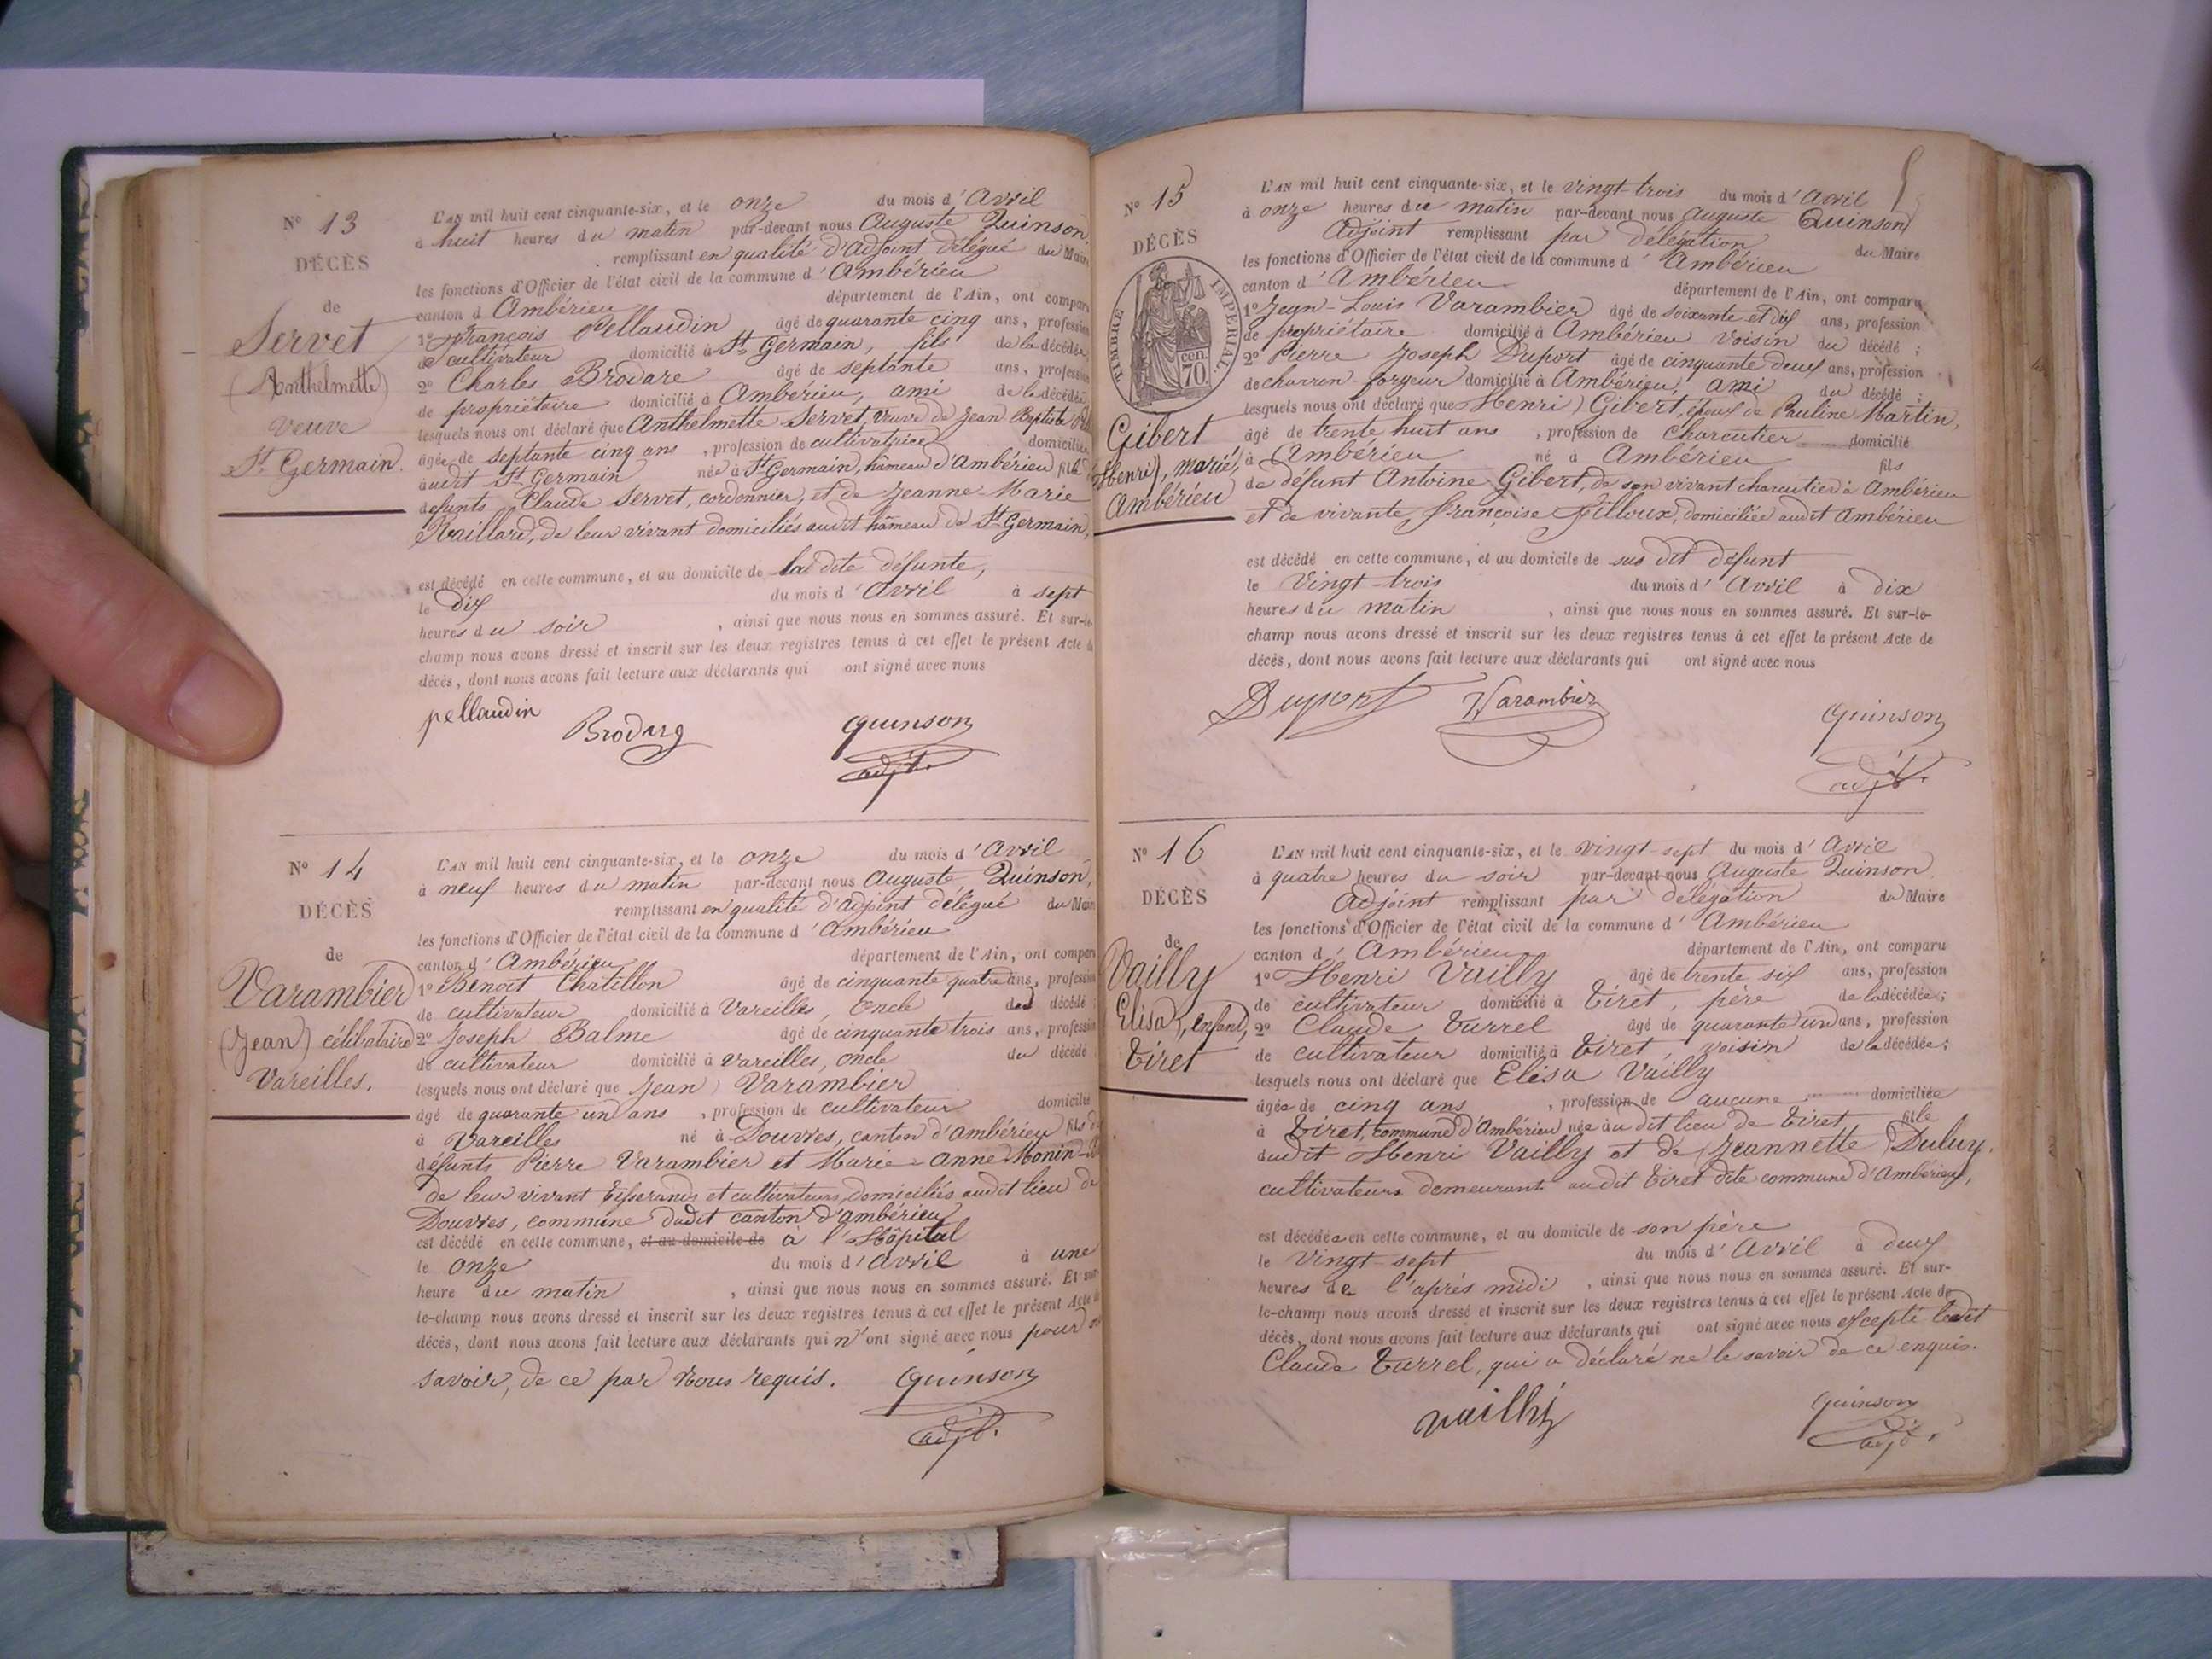 N° 13
DÉCÈS
de
Servet
(Anthelmette)
veuve
St Germain.
L'AN mil huit cent cinquante-six, et le onze du mois d'Avril
à huit heures du matin par-devant nous Auguste Quinson,
remplissant en qualité d'adjoint délégué du Maire
les fonctions d'Officier de l'état civil de la commune d'Ambérieu
canton d'Ambérieu département de l'Ain, ont comparu
1° François Pellaudin âgé de quarante cinq ans, profession
de cultivateur domicilié à St Germain, fils de la décédée
2° Charles Brodare âgé de septante ans, profession
de propriétaire domicilié à Ambérieu, ami de la décédée
lesquels nous ont déclaré que Anthelmette Servet, veuve de Jean Baptiste
âgée de septante cinq ans, profession de cultivatrice domiciliée
audit St Germain née à St Germain, hameau d'Ambérieu fille
défunts Claude Servet, cordonnier, et de Jeanne Marie
Raillard, de leur vivant domiciliés audit hâmeau de St Germain,
est décédé en cette commune, et au domicile de la dite défunte,
le dix du mois d'Avril à sept
heures du soir, ainsi que nous nous en sommes assuré. Et sur-le-
champ nous avons dressé et inscrit sur les deux registres tenus à cet effet le présent Acte de
décès, dont nous avons fait lecture aux déclarants qui ont signé avec nous
pellaudin Brodarg quinson
adjt.
N° 14
DÉCÈS
de
Varambier
(Jean) célibataire
Vareilles.
L'AN mil huit cent cinquante-six, et le onze du mois d'Avril
à neuf heures du matin par-devant nous Auguste Quinson,
remplissant en qualité d'adjoint délégué du Maire
les fonctions d'Officier de l'état civil de la commune d'Ambérieu
canton d'Ambérieu département de l'Ain, ont comparu
1° Benoit Chatillon âgé de cinquante quatre ans, profession
de cultivateur domicilié à Vareilles, oncle du décédé
2° Joseph Balme âgé de cinquante trois ans, profession
de cultivateur domicilié à Vareilles, oncle du décédé
lesquels nous ont déclaré que Jean Varambier
âgé de quarante un ans, profession de cultivateur domicilié
à Vareilles né à Douvres, canton d'Ambérieu fils de
défunts Pierre Varambier et Marie-Anne Monin
de leur vivant tisserands et cultivateurs, domiciliés audit lieu de
Douvres, commune dudit canton d'ambérieu
est décédé en cette commune, et au domicile de à l'Hôpital
le onze du mois d'Avril à une
heure du matin, ainsi que nous nous en sommes assuré. Et sur-
le-champ nous avons dressé et inscrit sur les deux registres tenus à cet effet le présent Acte de
décès, dont nous avons fait lecture aux déclarants qui n'ont signé avec nous pour
savoir, de ce par Nous requis. quinson
adjt.
N° 15
DÉCÈS
TIMBRE IMPÉRIAL
cen. 70.
Gibert
Henri), marié,
Ambérieu
L'AN mil huit cent cinquante-six, et le vingt-trois du mois d'Avril
à onze heures du matin par-devant nous Auguste Quinson
Adjoint remplissant par délégation du Maire
les fonctions d'Officier de l'état civil de la commune d'Ambérieu
canton d'Ambérieu département de l'Ain, ont comparu
1° Jean-Louis Varambier âgé de soixante et dix ans, profession
de propriétaire domicilié à Ambérieu voisin du décédé ;
2° Pierre Joseph Duport âgé de cinquante deux ans, profession
de charron forgeur domicilié à Ambérieu, ami du décédé ;
lesquels nous ont déclaré que Henri Gibert, époux de Pauline Martin,
âgé de trente huit ans, profession de Charcutier domicilié
à Ambérieu né à Ambérieu fils
de défunt Antoine Gibert, de son vivant charcutier à Ambérieu
et de vivante Françoise Filloux, domiciliée audit Ambérieu
est décédé en cette commune, et au domicile de sus dit défunt
le vingt-trois du mois d'Avril à dix
heures du matin, ainsi que nous nous en sommes assuré. Et sur-le-
champ nous avons dressé et inscrit sur les deux registres tenus à cet effet le présent Acte de
décès, dont nous avons fait lecture aux déclarants qui ont signé avec nous
Duport Varambier quinson
adjt.
N° 16
DÉCÈS
de
Vailly
Elisa), enfant,
Tiret
L'AN mil huit cent cinquante-six, et le vingt-sept du mois d'Avril
à quatre heures du soir par-devant nous Auguste Quinson
Adjoint remplissant par délégation du Maire
les fonctions d'Officier de l'état civil de la commune d'Ambérieu
canton d'Ambérieu département de l'Ain, ont comparu
1° Henri Vailly âgé de trente six ans, profession
de cultivateur domicilié à Tiret, père de la décédée ;
2° Claude Turrel âgé de quarante un ans, profession
de cultivateur domicilié à Tiret, voisin de la décédée ;
lesquels nous ont déclaré que Elisa Vailly
âgée de cinq ans, profession de aucune domiciliée
à Tiret, commune d'Ambérieu née au dit lieu de Tiret fille
dudit Henri Vailly et de Jeannette Duluy,
cultivateurs demeurant audit Tiret dite commune d'Ambérieu,
est décédée en cette commune, et au domicile de son père
le vingt-sept du mois d'Avril à deux
heures de l'après midi, ainsi que nous nous en sommes assuré. Et sur-
le-champ nous avons dressé et inscrit sur les deux registres tenus à cet effet le présent Acte de
décès, dont nous avons fait lecture aux déclarants qui ont signé avec nous excepté ledit
Claude Turrel, qui a déclaré ne le savoir de ce enquis.
vailly quinson
adjt.